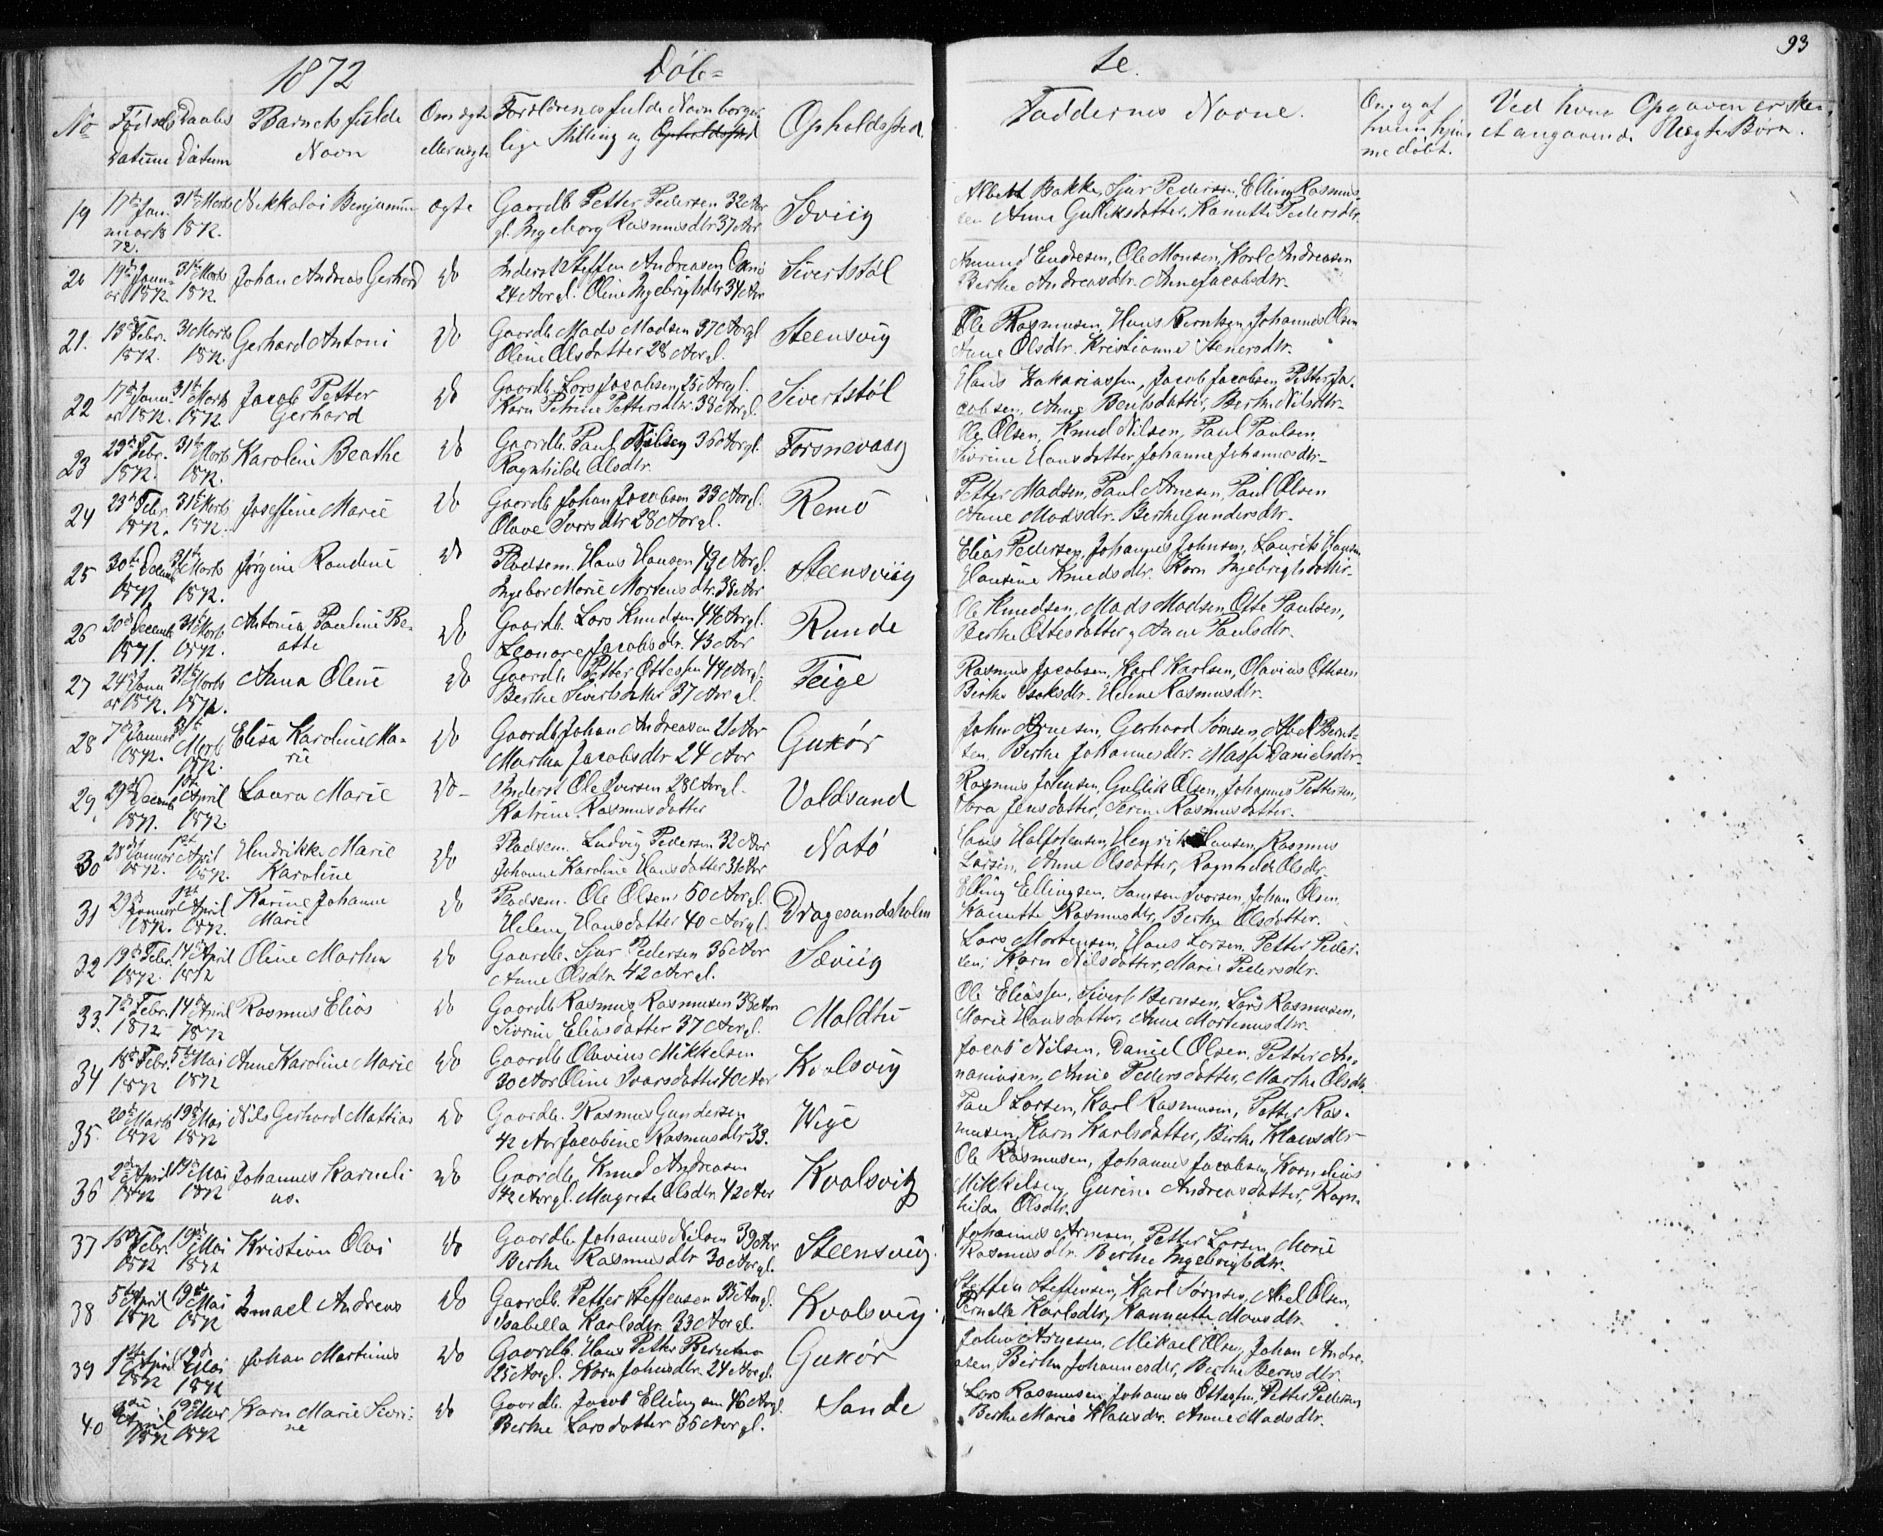 93
1872 Døb= te.
No
Fødsels Datum
Daabs Datum
Barnets fulde Navn
Om ægte eller uægte
Forældrenes fulde Navn borger
lige Stilling og Opholdssted
Opholdssted
Faddernes Navne.
Om og af hvem hjem
me døbt.
Ved hvem Opgaven er ske
et angaaende Uægte Børn.
19 17de Jan
nuar 72. 31te Marts 1872. Nikkolai Benjamin ægte Gaardb. Petter Pedersen 32 Aar
gl. Ingeborg Rasmusdtr 37 Aar Sæviig
Albert Bakke, Sjur Pedersen, Elling Rasmus
sen Anne Gulliksdatter, Kanutte Pedersdtr
20 19de Janu
ar 1872 31te Marts 1872. Johan Andreas Gerhard Do Inderst Steffen Andreasen
24 Aar gl. Oline Ingebrigtsdtr 34 Aar Sivertstøl
Amund Endresen, Ole Monsen, Karl Andreasen
Berthe Andreasdtr. Anne Jacobsdtr.
21. 18de Febr. 1872. 31 Marts 1872. Gerhard Antoni Do Gaardb. Mads Madsen 37 Aar gl
Oline Olsdatter 28 Aar gl. Steensvig
Ole Rasmusen, Hans Berntsen, Johannes Olsen
Anne Olsdtr. Kristianne Stenersdtr.
22 17de Janu
ar 1872. 31te Marts 1872 Jacob Petter
Gerhard Do Gaardb. Lars Jacobsen 25 Aar gl.
Karn Petrine Pettersdtr 38 Aar gl. Sivertstøl
Hans Zakariassen, Jacob Jacobsen, Petter Ja
cobsen, Anne Bentsdatter, Berthe Nilsdtr
23 23de Febr. 1872. 31te Marts 1872. Karoline Beathe Do Gaardb. Paul Nilsen 36 Aar gl.
Ragnhilde Olsdtr. Torsnevaag
Ole Olsen, Knud Nilsen, Paul Paulsen
Sivrine Hansdatter, Johanne Johannesdtr
24 23de Febr. 1872. 31te Marts 1872. Joseffine Marie Do Gaardb. Johan Jacobsen 33 Aar gl.
Olave Ivarsdtr 28 Aar gl. Remø
Petter Madsen, Paul Arnesen, Paul Olsen
Anne Madsdtr. Berthe Gundersdtr.
25 30te Decemb 1871 31te Marts 1872. Jørgine Randine Do Pladsem. Hans Hansen 43 Aar gl.
Ingebor Marie Mortensdtr. 38 Aar Steensviig
Elias Pedersen, Johannes Johnsen, Laurits Hansen
Hansine Knudsdtr. Karn Ingebrigtsdatter
26 20de Decemb 1871. 31te Marts 1872. Antonia Pauline Be-
atte Do Gaardb. Lars Knudsen 44 Aar gl.
Leonore Jacobsdtr. 43 Aar Runde
Ole Knudsen, Mads Madsen, Otte Paulsen,
Berthe Ottesdatter, Anne Paulsdtr.
27 24de Janu
ar 1872. 31te Marts 1872. Anna Oline Do Gaardb. Petter Ottesen 44 Aar gl.
Berthe Sivertsdtr 37 Aar gl. Teige
Rasmus Jacobsen, Karl Karlsen, Olavius Ottesen
Berthe Isaksdtr. Helene Rasmusdtr.
28 7de Januar 1872. 31te Marts 1872. Elisa Karoline Ma-
rie Do Gaardb. Johan Andreasen 21 Aar
Martha Jacobsdtr 24 Aar Gukør
John Arnesen, Gerhard Sørnsen, Abel Bernt
sen, Berthe Johannesdtr. Masse Danielsdtr.
29. 29de Decemb 1871. 1ste April 1872. Laura Marie Do Inderst Ole Iversen 28 Aar gl.
Katrine Rasmusdatter Voldsund
Rasmus Johnsen, Gullik Olsen, Johannes Pettersen,
Thora Jensdatter, Serine Rasmusdatter.
30 28de Januar 1872. 1ste April 1872. Hendrikke Marie
Karoline Do Pladsem. Ludvig Pedersen 32 Aar
Johanne Karoline Hansdatter 31 Aar Notø
Hans Halfstensen, Henrik Hansen, Rasmus
Larsen, Anne Olsdatter, Ragnhilde Olsdtr.
31 29de Januar 1872. 1ste April 1872. Karine Johanne
Marie Do Pladsem. Ole Olsen 50 Aar gl.
Helene Hansdatter 40 Aar gl. Dragesundsholm
Elling Ellingsen, Samson Ivarsen, Johan Olsen,
Kanutte Rasmusdtr, Berthe Olsdatter.
32 19de Febr. 1872. 14de April 1872 Oline Marthea Do Gaardb. Sjur Pedersen 36 Aar
Anne Olsdtr. 42 Aar gl. Sæviig
Lars Mortensen, Hans Larsen, Petter Peder
sen, Karn Nilsdatter, Marie Pedersdtr.
33. 7de Febr. 1872 14de April 1872 Rasmus Elias Do Gaardb. Rasmus Rasmusen 38 Aar
Sivrine Eliasdatter 37 Aar gl. Moldtu
Ole Eliassen, Sivert Bernsen, Lars Rasmusen,
Marie Hansdatter, Anna Mortensdtr.
34 18de Febr. 1872 5te Mai 1872 Anne Karoline Marie Do Gaardb. Olavius Mikkelsen
30 Aar Oline Ivarsdatter 40 Aar Kvalsvig
Jacob Nilsen, Daniel Olsen, Petter An
naniasen, Anne Pedersdatter, Marthe Olsdtr.
35. 20de Marts 1872 19de Mai 1872 Nils Gerhard Mathias Do Gaardb. Rasmus Gundersen
42 Aar Jacobine Rasmusdtr 33. Wige
Paul Larsen, Karl Rasmusen, Petter Ras-
musen, Karn Karlsdatter, Birthe Klausdtr
36 2den April 1872 19de Mai 1872 Johannes Karneli
us. Do Gaardb. Knud Andreasen
42 Aar gl. Magrete Olsdtr. 42 Aar Kvalsvig
Ole Rasmusen, Johannes Jacobsen, Kornelius
Mikkelsen, Gurine Andreasdatter, Ragn
hilde Olsdtr.
37 16de Febr. 1872 19de Mai 1872 Kristian Olai Do Gaardb. Johannes Nilsen 39 Aar
Berthe Rasmusdtr 30 Aar gl. Steensvig.
Johannes Arnesen, Petter Larsen, Marie
Rasmusdtr. Berthe Ingebrigtsdtr.
38 5te April 1872 19de Mai 1872 Ismael Andreas Do Gaardb. Petter Steffensen 35 Aar gl.
Isabella Karlsdtr. 33 Aar gl. Kvalsvig
Steffen Steffensen, Karl Sørnsen, Abel Olsen,
Pernella Karlsdtr, Kannutte Monsdtr.
39 1ste April 1872 19de Mai 1872 Johan Martinus Do Gaardb. Hans Petter Berntsen
25 Aar gl. Karn Johnsdtr. 24 Aar gl. Gukør
John Arnesen, Mikael Olsen, Johan Andre
asen, Birthe Johannesdtr, Berthe Berntsdtr.
40 April 1872 19de Mai 1872 Karn Marie Sivri-
ne Do Gaardb. Jacob Ellingsen 46 Aar gl.
Berthe Larsdatter 36 Aar gl. Sande
Lars Rasmusen, Johannes Ottesen, Petter Pedersen
Berthe Marie Klausdtr. Anne Madsdtr.